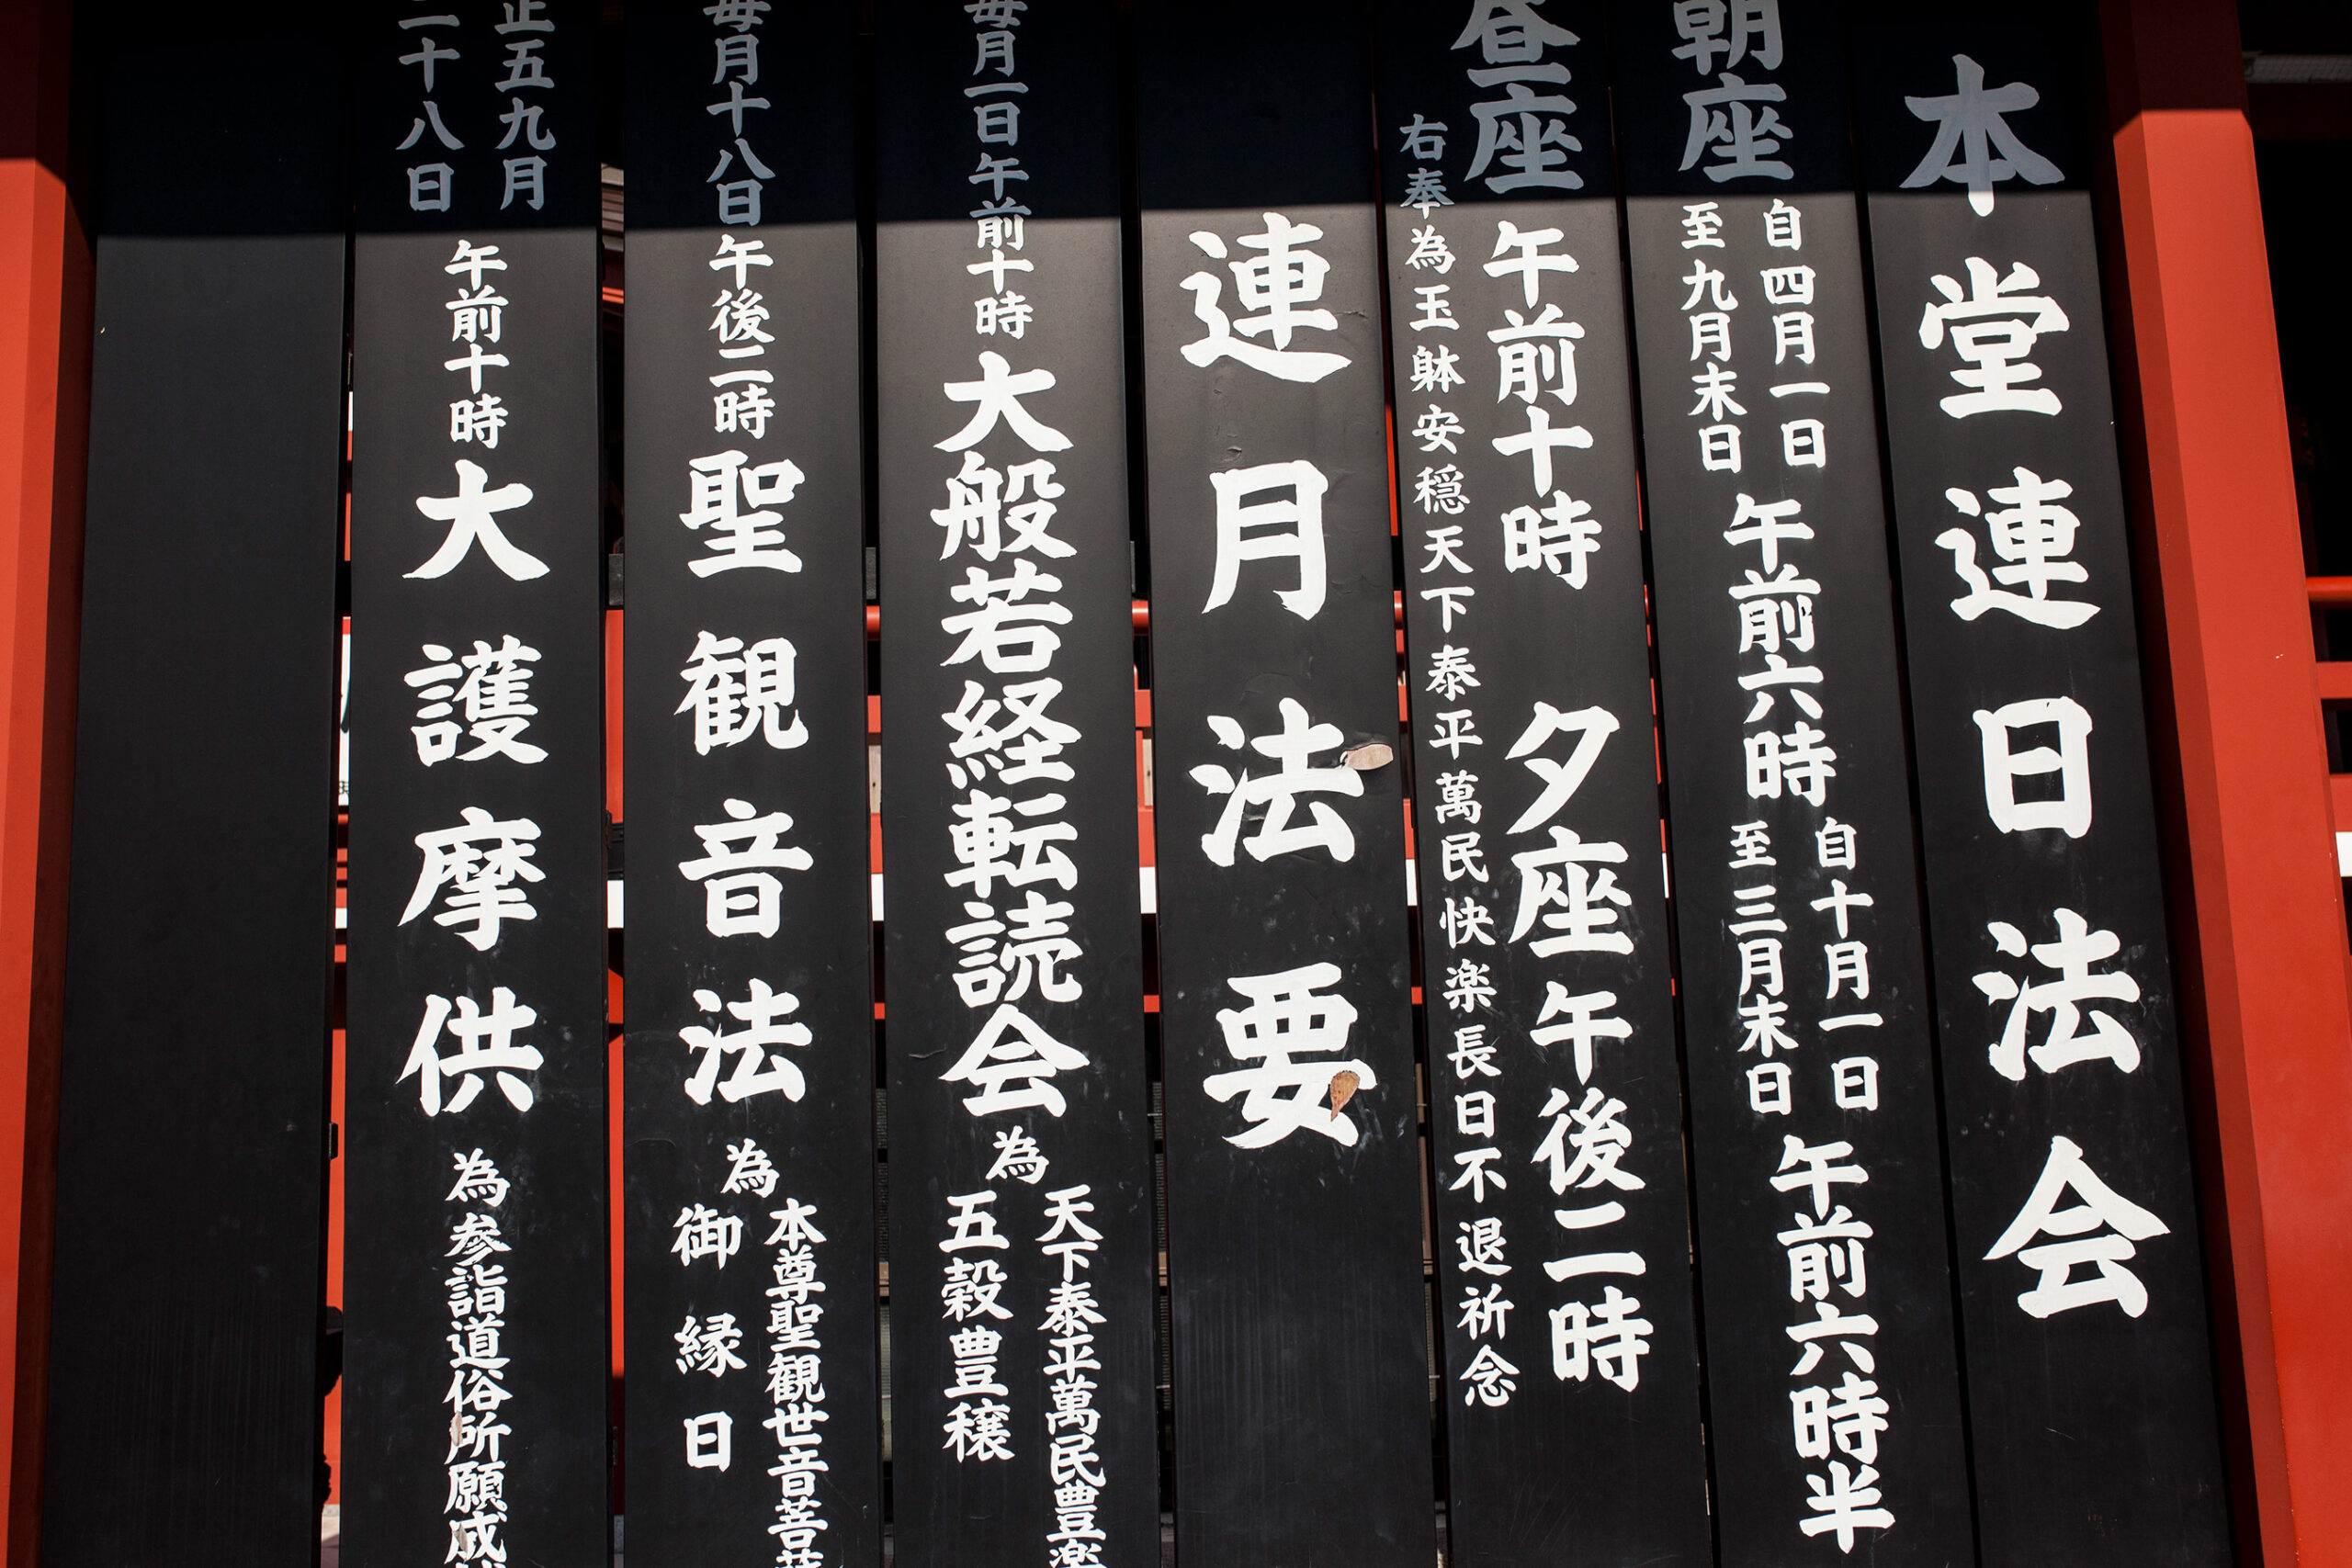 本堂連日法会
朝座
自四月一日
至九月末日
午前六時
自十月一日
至三月末日
午前六時半
昼座 午前十時 夕座 午後二時
右奉為玉躰安穏天下泰平萬民快楽長日不退祈念
連月法要
毎月一日午前十時
大般若経転読会
為
天下泰平萬民豊楽
五穀豊穣
毎月十八日午後二時
聖観音法
為
本尊聖観世音菩
御縁日
正五九月
二十八日
午前十時
大護摩供
為参詣道俗所願成